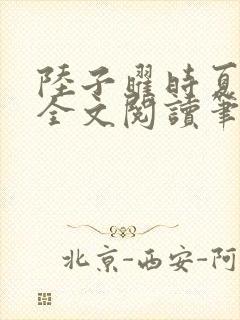 陸子曜時夏
全文閱讀筆
北京-西安-阿